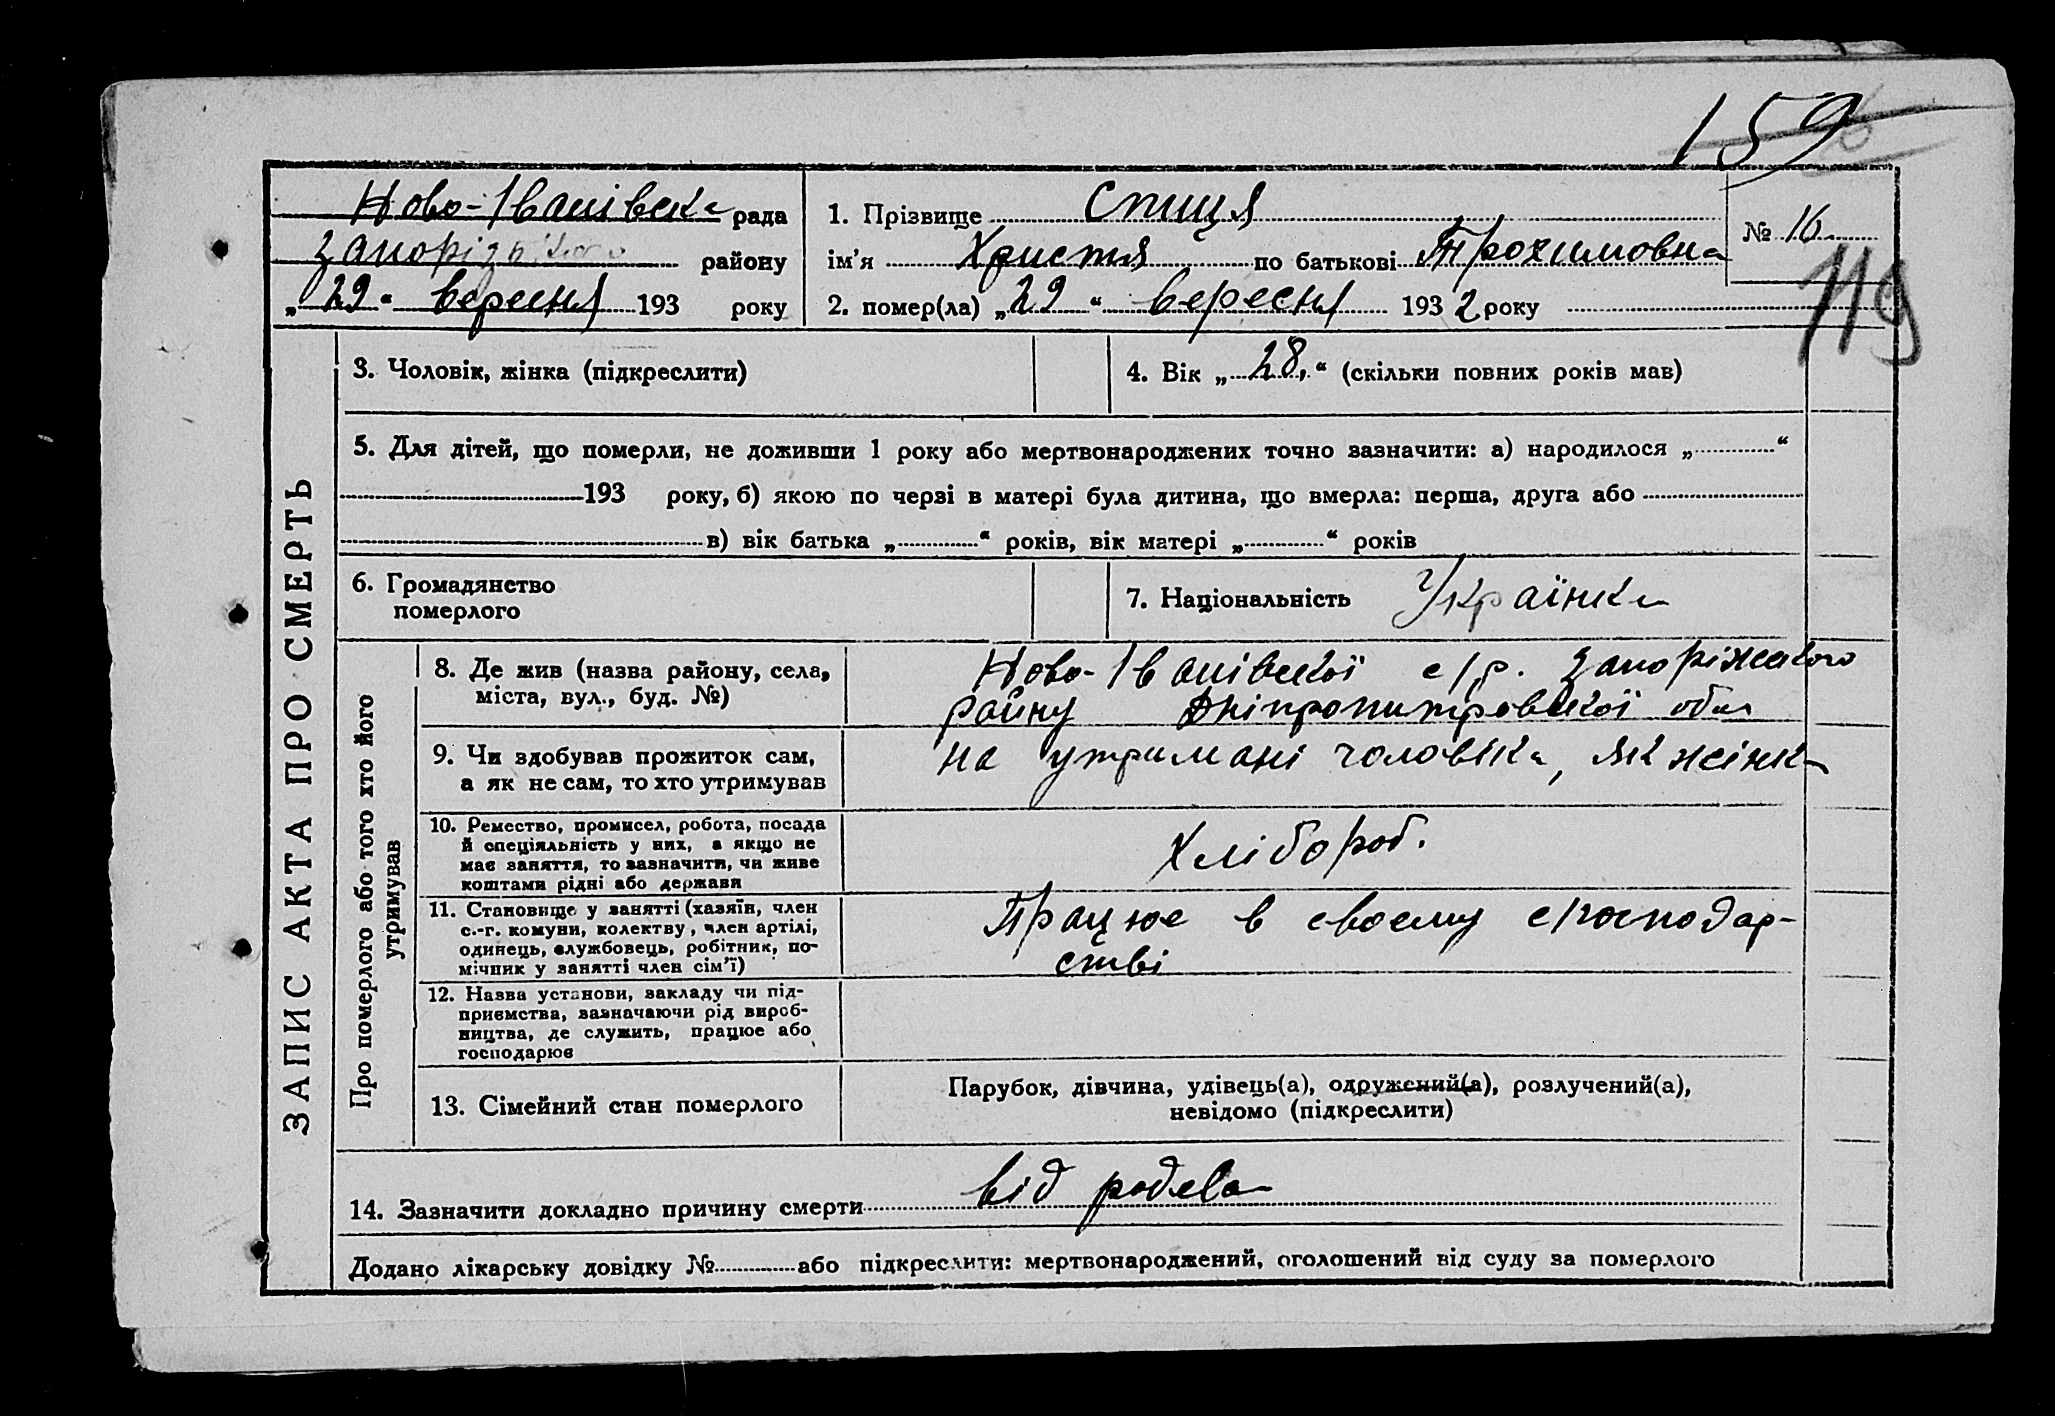 159
Ново-Іванівська рада
Запорізького району
„29“ вересня 193 року
1. Прізвище Спиця
ім’я Христя по батькові Трохимовна
2. помер(ла) „29“ вересня 1932 року
№ 16
119
ЗАПИС АКТА ПРО СМЕРТЬ
3. Чоловік, жінка (підкреслити)
4. Вік „28“ (скільки повних років мав)
5. Для дітей, що померли, не доживши 1 року або мертвонароджених точно зазначити: а) народилося „ “
193 року, б) якою по черзі в матері була дитина, що вмерла: перша, друга або
в) вік батька „ “ років, вік матері „ “ років
6. Громадянство
померлого
7. Національність Українка
Про померлого або того хто його
утримував
8. Де жив (назва району, села,
міста, вул., буд. №)
Ново-Іванівської с/р. Запоріжського
району Дніпропитровської обл
9. Чи здобував прожиток сам,
а як не сам, то хто утримував
на утримані чоловіка, як жінка
10. Ремество, промисел, робота, посада
й спеціяльність у них, а якщо не
має заняття, то зазначити, чи живе
коштами рідні або держави
Хлібороб.
11. Становище у занятті (хазяїн, член
с.-г. комуни, колективу, член артілі,
одинець, службовець, робітник, по-
мічник у занятті член сім’ї)
Працює в своєму с/господар-
стві
12. Назва установи, закладу чи під-
приємства, зазначаючи рід вироб-
ництва, де служить, працює або
господарює
13. Сімейний стан померлого
Парубок, дівчина, удівець(а), одружений(а), розлучений(а),
невідомо (підкреслити)
14. Зазначити докладно причину смерти від родова
Додано лікарську довідку № або підкреслити: мертвонароджений, оголошений від суду за померлого